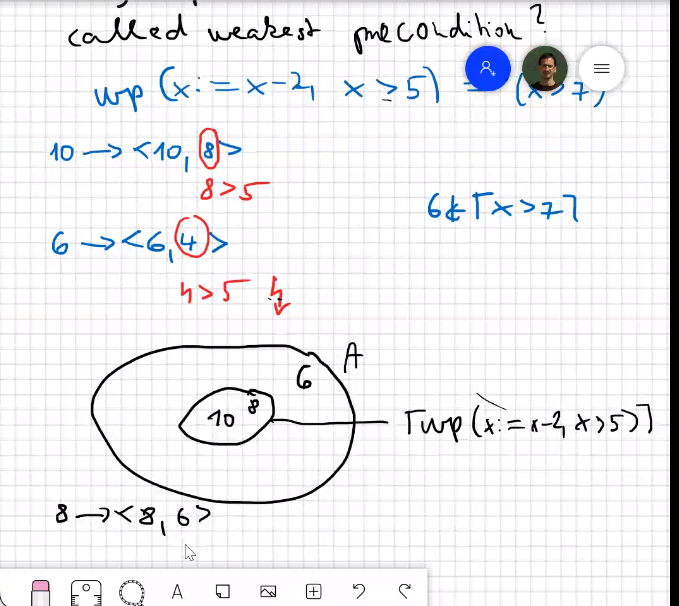 called weakest precondition?
wp (x:=x-2, x>5) = (x>7)
10 → <10, 8>
8>5
6 ∉ ⌈x>7⌉
6 → <6, 4>
4>5 ↯
A
6
8
10
⌈wp (x:=x-2, x>5)⌉
8 → <8, 6>
A